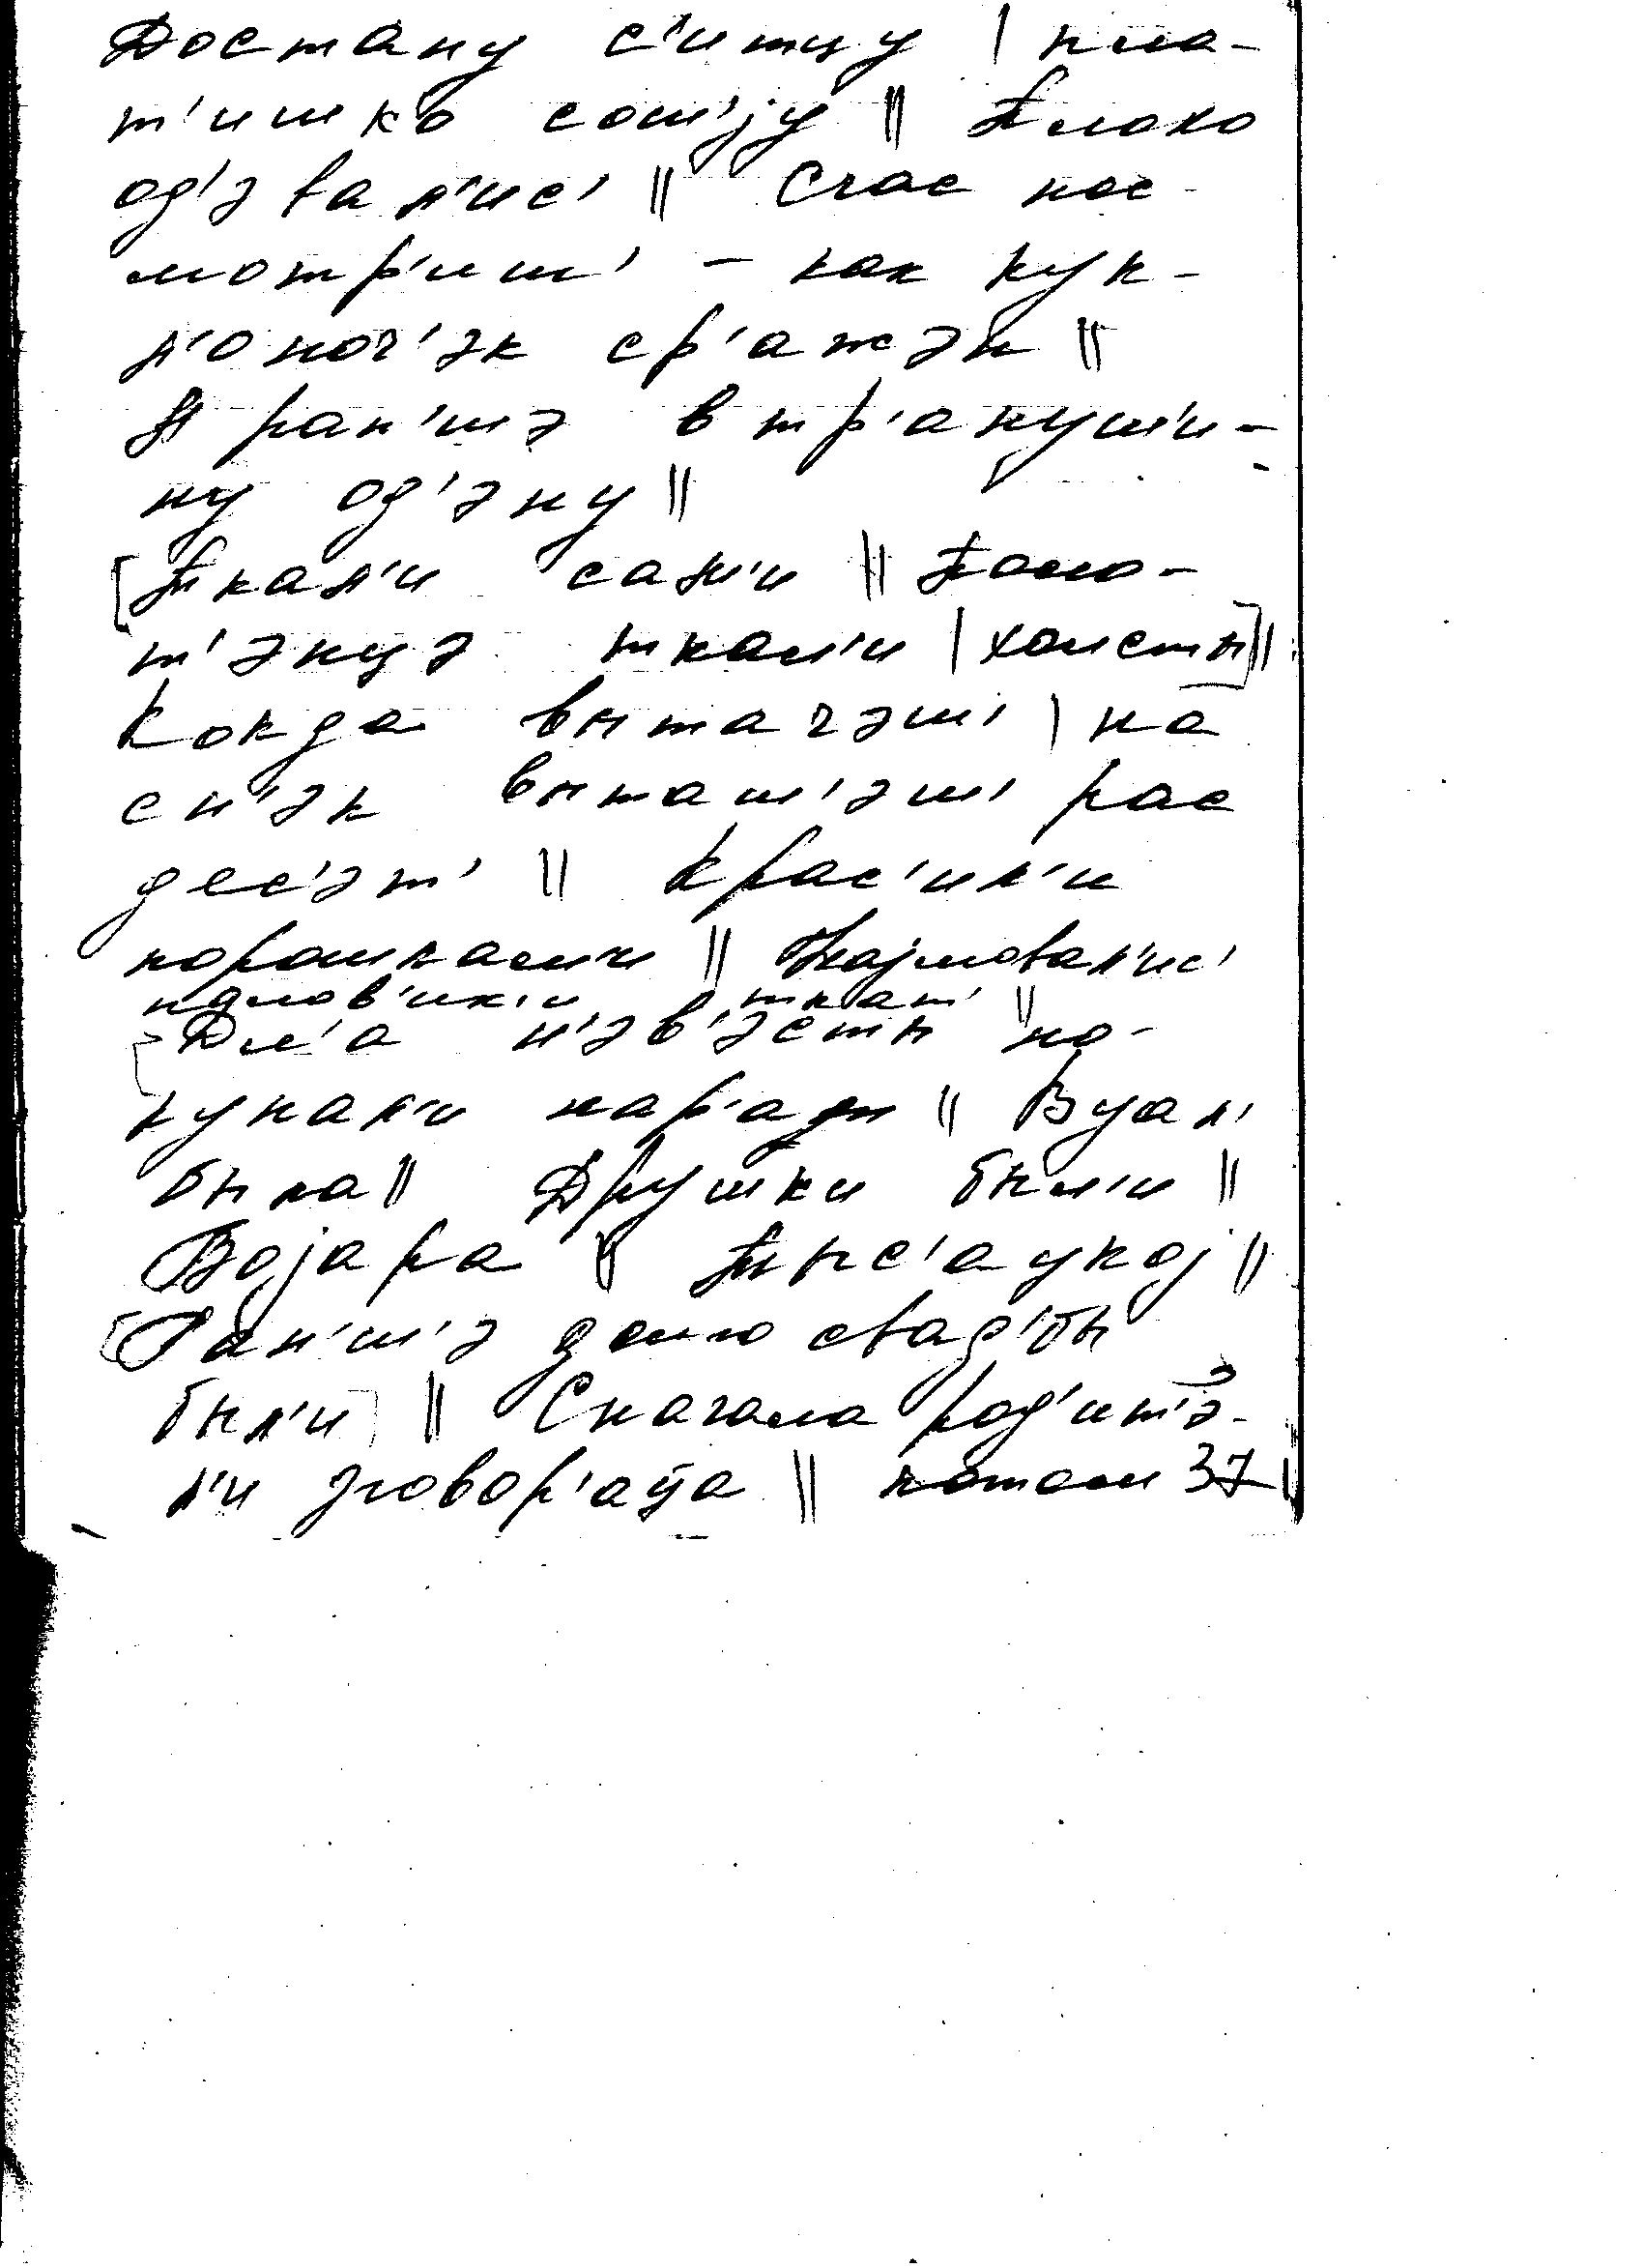 Достану с'итцу | пла-
т'ишко сош'jу || Плохо
од'эвал'ис' || Счас пос-
мотр'иш' – как кук-
л'оноч'эк ср'ажэн ||
А ран'шэ в тр'апуш'и-
ну од'эну ||
[Ткал'и сам'и || Поло-
т'энцэ ткал'и | холсты] ||
Когда выточэш' | на
сн'эк выташ'эш' рас
дес'эт' || Крас'ил'и
порошками || Наймовал'ис'
полов'ик'и ткат' ||
[Дл'а н'эв'эсты по-
купал'и нар'ады || Вуал'
была || Друшки был'и ||
Војара || Тыс'ацкој ||
[Ран'ш'э долго свад'бы
был'и] || Сначала род'ит'э-
л'и зговор'аца || потом 37